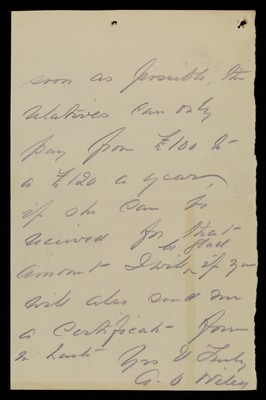 soon as possible, the
relatives can only
pay from £100 to
a £120 a year,
if she can be
received for that
amount I will be glad if you
will also send me
a Certificate form
in haste Yrs Truly
A. O